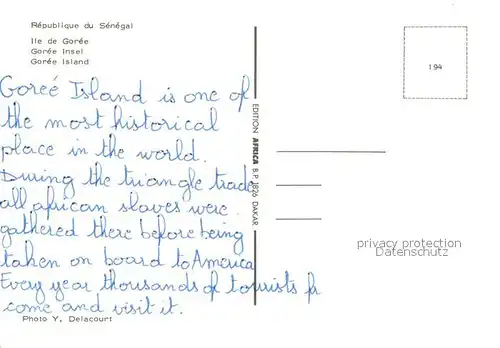 République du Sénégal
Ile de Gorée
Gorée Insel
Gorée Island
194
Goreé Island is one of
the most historical
place in the world.
During the triangle trade
all african slaves were
gathered there before being
taken on board to America
Every year thousands of tourists
come and visit it.
Photo Y. Delacourt
EDITION AFRICA B.P. 1826 DAKAR
privacy protection
Datenschutz